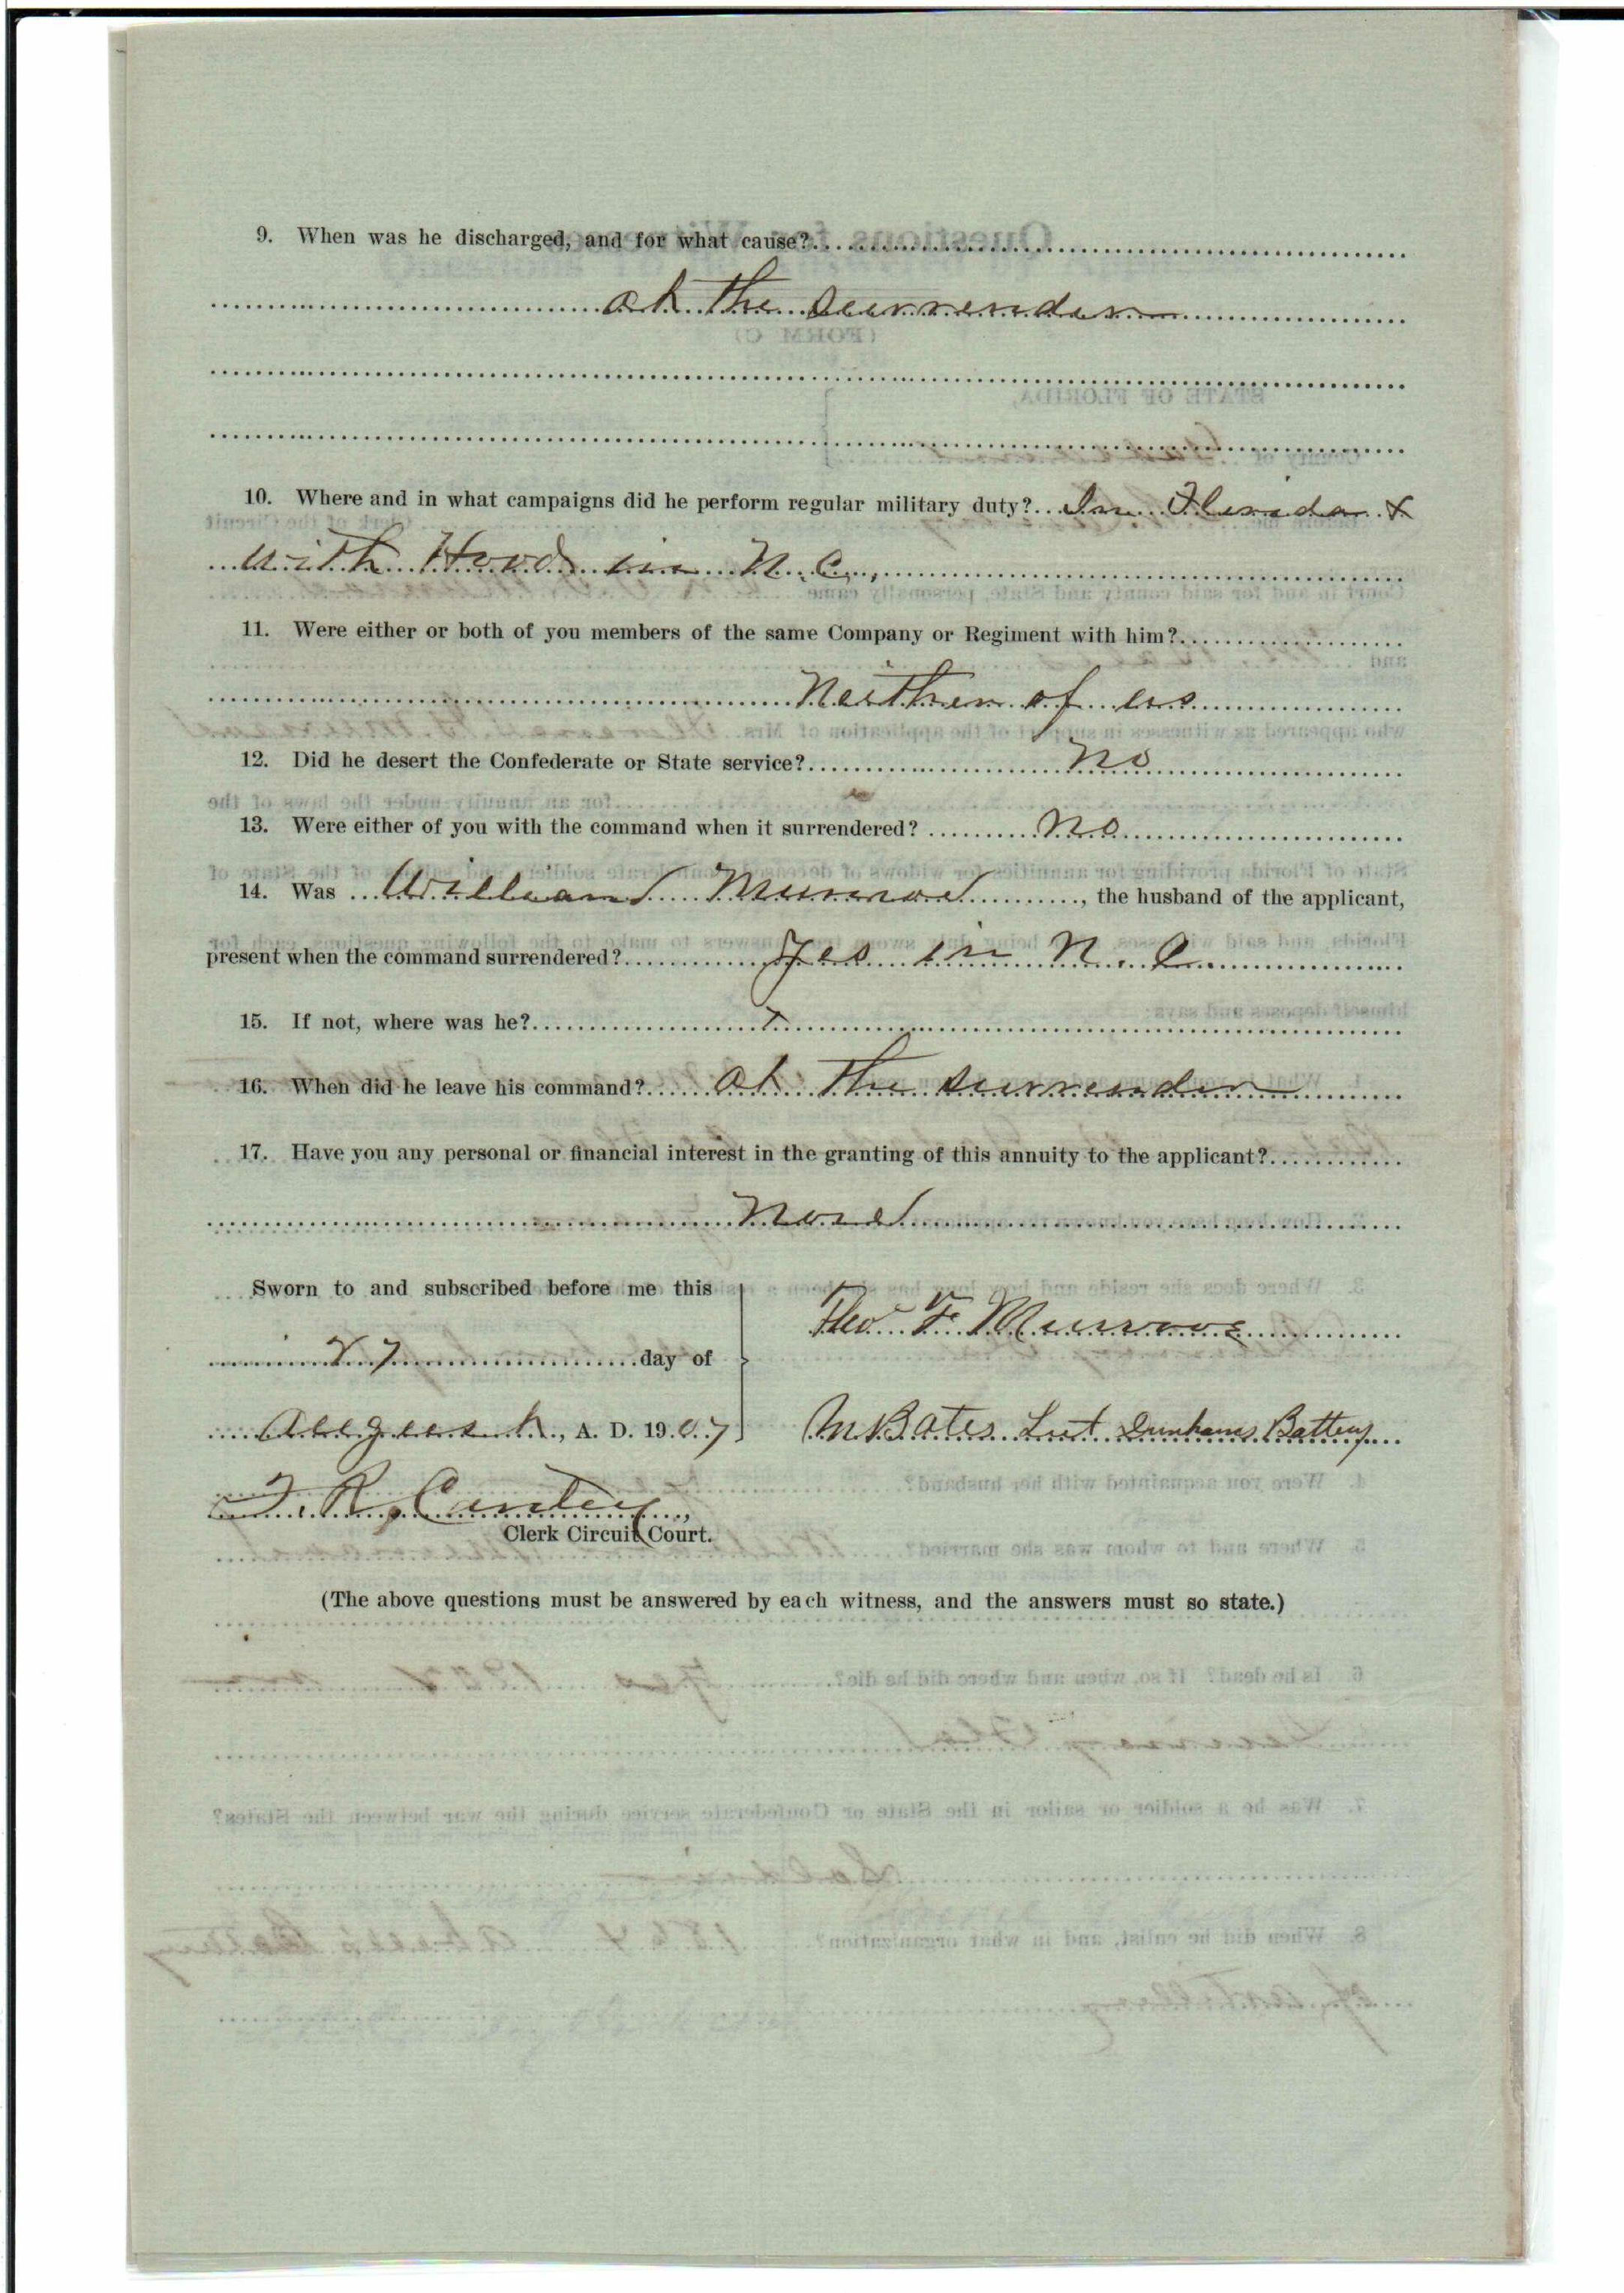 9. When was he discharged, and for what cause?
at the surrender
10. Where and in what campaigns did he perform regular military duty? In Florida &
with Hood in N.C.,
11. Were either or both of you members of the same Company or Regiment with him?
Neither of us
12. Did he desert the Confederate or State service? No
13. Were either of you with the command when it surrendered? No
14. Was William Munroe, the husband of the applicant,
present when the command surrendered? Yes in N.C.
15. If not, where was he? x
16. When did he leave his command? at the surrender
17. Have you any personal or financial interest in the granting of this annuity to the applicant?
None
Sworn to and subscribed before me this
27 day of
August, A. D. 1907
Theo F Munroe
M Bates Lut Dunhams Battery
Clerk Circuit Court.
(The above questions must be answered by each witness, and the answers must so state.)